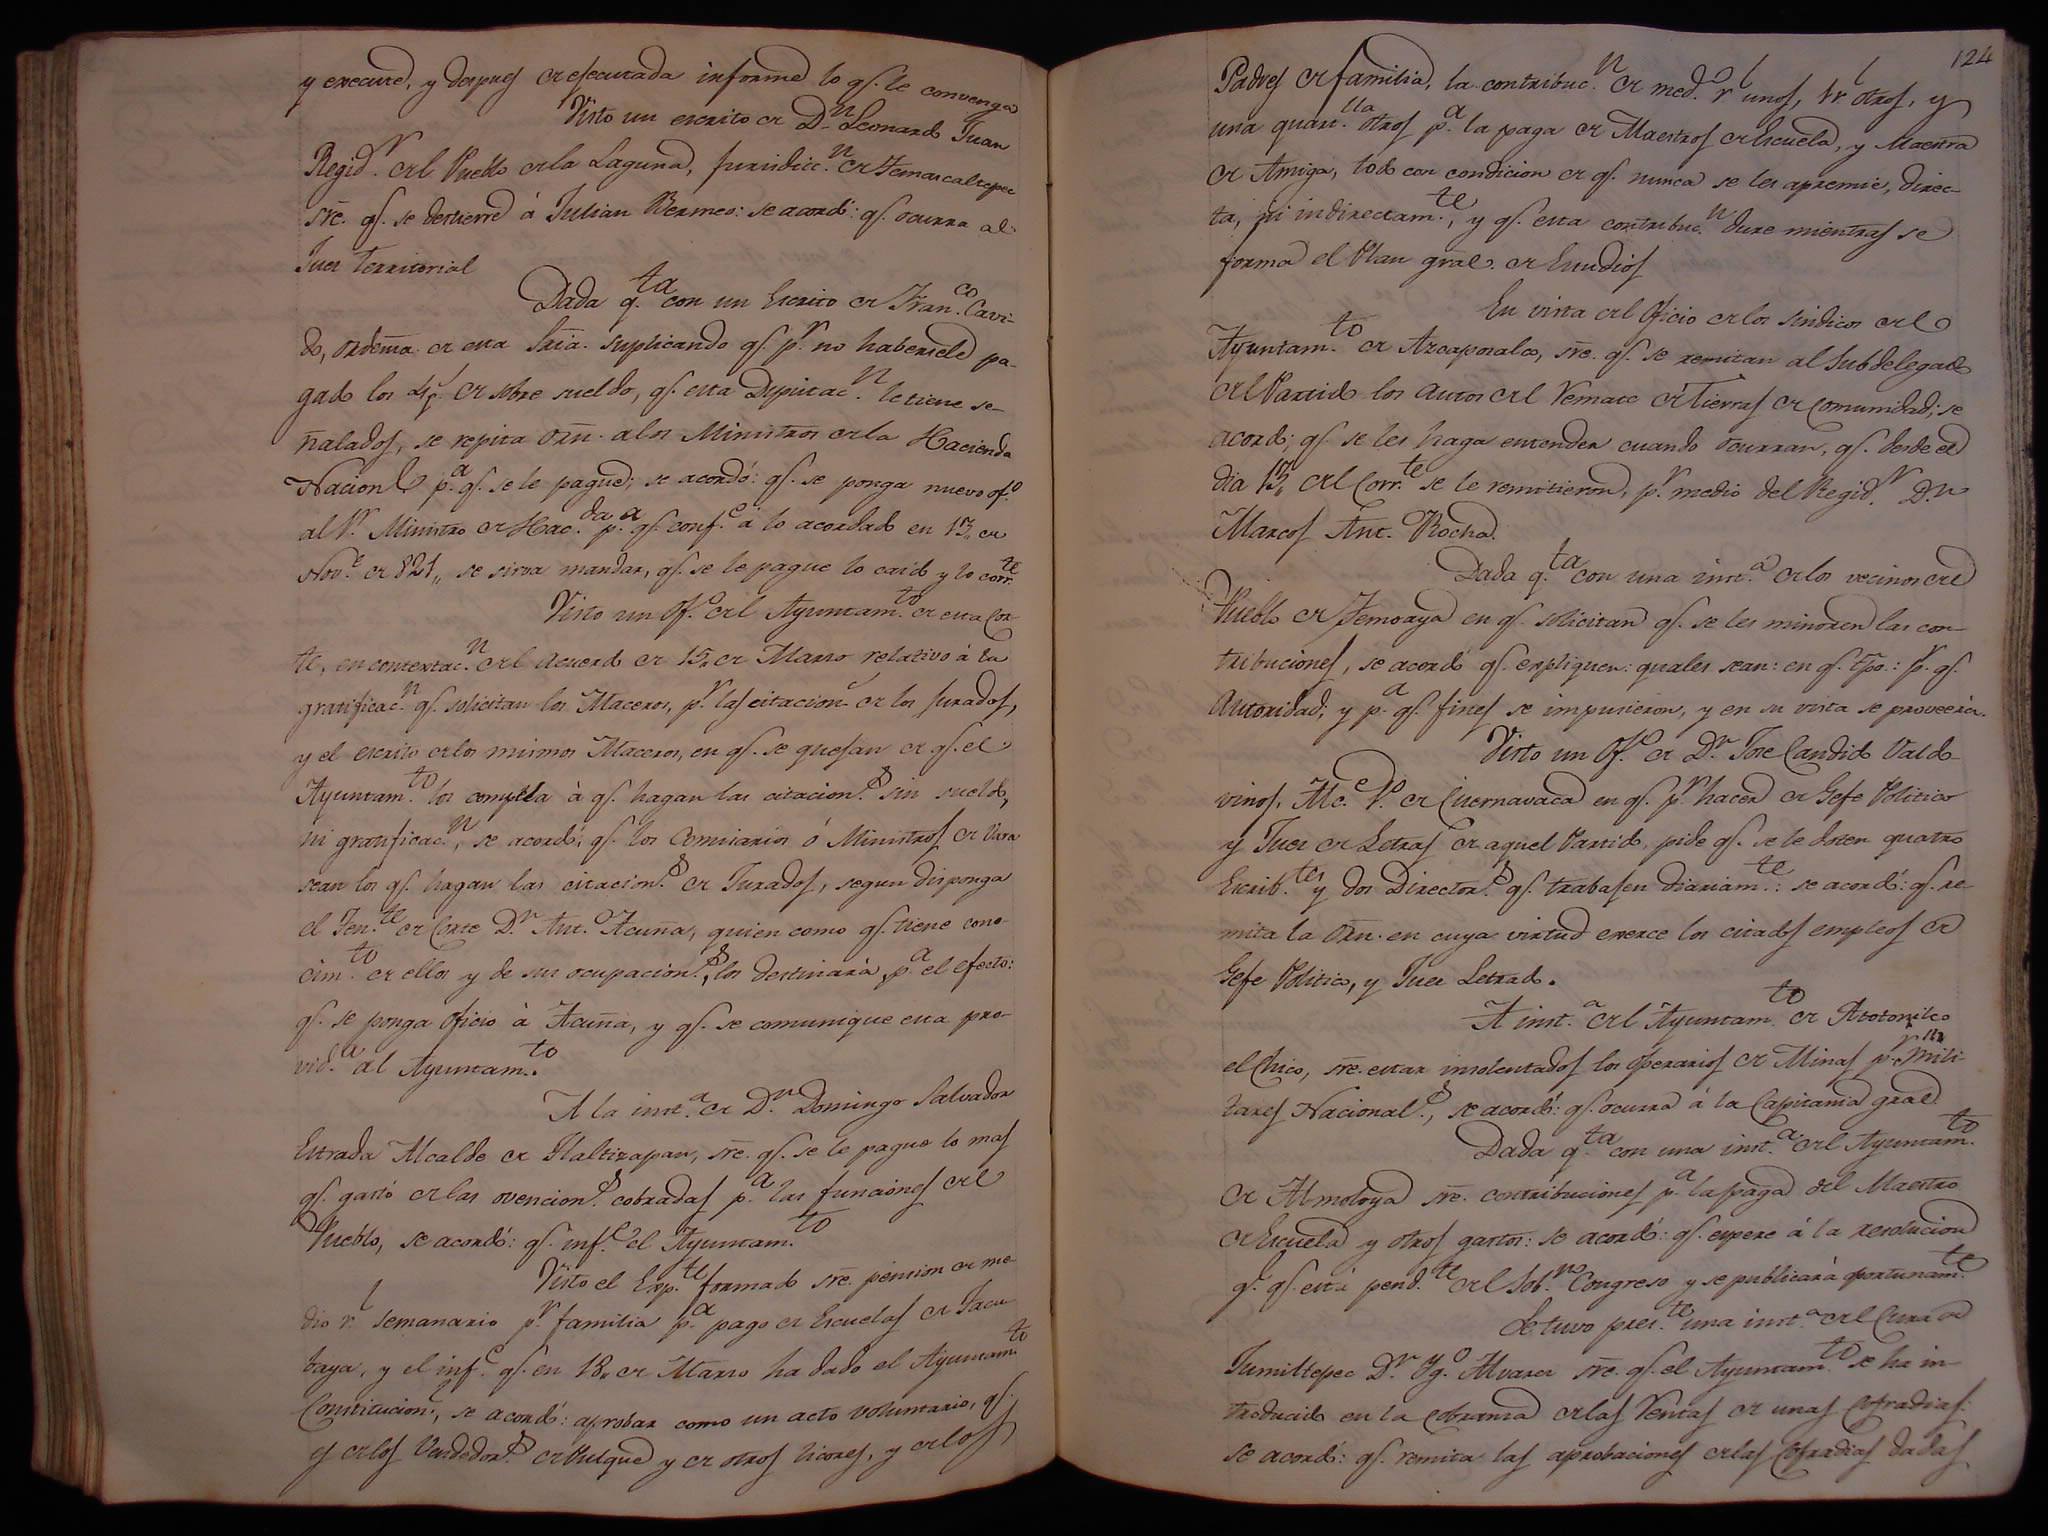 y execute, y despues de esecutada informe lo q.e le convenga
Visto un escrito de D.n Leonardo Juan
Regid.r del Pueblo dela Laguna, jurisdicc.n de Temascaltepec
sre. q.e se destierre á Julian Bermeo: se acordó: q.e ocurra al
Juez territorial
Dada q.ta con un Escrito de Fran.co Cavi-
do, ordenza de esta Sría. suplicando q.e p.r no habersele pa-
gado los 4 p.s de sobre sueldo, q.e esta Diputac.n le tiene se-
ñalados, se repita orn. alos Ministros dela Hacienda
Nacional p.a q.e se le pague; se acordó: q.e se ponga nuevo of.o
al S.r Ministro de Hac.da p.a q.e conf.e á lo acordado en 13,, de
Nov.e de 821,, se sirva mandar, q.e se le pague lo caido y lo corr.te
Visto un Of.o del Ayuntam.to de esta Cor-
te, en contextac.n del acuerdo de 15,, de Marzo relativo á la
gratificac.n q.e solicitan los Maceros, p.r las citacion.s de los Jurados,
y el escrito delos mismos Maceros, en q.e se quejan de q.e el
Ayuntam.to los compela à q.e hagan las citacion.s sin sueldo,
ni gratificac.n, se acordó, q.e los Comisarios ó Ministros de Vara
sean los q.e hagan las citacion.s de Jurados, segun disponga
el Ten.te de Corte D.n Ant.o Acuña, quien como q.e tiene cono-
cim.to de ellos y de sus ocupacion.s, los destinará p.a el efecto:
q.e se ponga Oficio à Acuña, y q.e se comunique esta pro-
vid.a al Ayuntam.to
A la inst.a de D.n Domingo Salvador
Estrada Alcalde de Tlaltizapan, sre. q.e se le pague lo mas
q.e gastó delas ovencion.s cobradas p.a las funciones del
Pueblo, se acordó: q.e inf.e el Ayuntam.to
Visto el Exp.te formado sre. pension de me-
dio r.l semanario p.r familia p.a pago de Escuelas de Tacu-
baya, y el inf.e q.e en 18,, de Marzo ha dado el Ayuntam.to
Constitucion.l, se acordó: aprobar como un acto voluntario, q.e
es delos Vendedor.s de Pulque y de otros licores, y delos
124
Padres de familia, la contribuc.n de med.o r.l unos, 1 r.l otros, y
una quart.lla otros p.a la paga de Maestros de Escuela, y Maestra
de Amiga, todo con condicion de q.e nunca se les apremie, direc-
ta, ni indirectam.te, y q.e esta contribuc.n dure mientras se
forma el Plan gral. de Estudios
En vista del Oficio delos Sindicos del
Ayuntam.to de Azcapozalco, sre. q.e se remitan al Subdelegado
del Partido los autos del Remate de Tierras de comunidad; se
acordó; q.e se les haga entender cuando ocurran, q.e desde el
dia 13,, del Corr.te se le remitieron, p.r medio del Regid.r D.n
Marcos Ant.o Rocha.
Dada q.ta con una inst.a delos vecinos del
Pueblo de Temoaya en q.e solicitan q.e se les minoren las con-
tribuciones, se acordó q.e expliquen: quales sean: en q.e tpo.: p.r q.e
Autoridad; y p.a q.e fines se impusieron, y en su vista se proveerá.
Visto un Of.o de D.n Jose Candido Valdo-
vinos, Alc.e 1.o de Cuernavaca en q.e p.r hacer de Gefe Politico
y Juez de Letras de aquel Partido, pide q.e se le doten quatro
Escrib.tes y dos Director.s q.e trabajen diariam.te: se acordó: q.e re-
mita la orn. en cuya virtud exerce los citados empleos de
Gefe Politico, y Juez Letrado.
A inst.a del Ayuntam.to de Atotonilco
el Chico, sre. estar insolentados los Operarios de Minas p.r ser Mili-
tares Nacional.s, se acordó: q.e ocurra á la Capitania gral
Dada q.ta con una inst.a del Ayuntam.to
de Almoloya sre. contribuciones p.a la paga del Maestro
de Escuela y otros gastos: se acordó: q.e espere á la resolucion
q.e está pend.te del Sob.no Congreso y se publicará oportunam.te
Se tuvo pres.te una inst.a del Cura de
Jumiltepec D.n Yg.o Alvarez sre. q.e el Ayuntam.to se ha in-
troducido en la Cobranza delas Rentas de unas Cofradias:
se acordó: q.e remita las aprobaciones delas Cofradias dadas